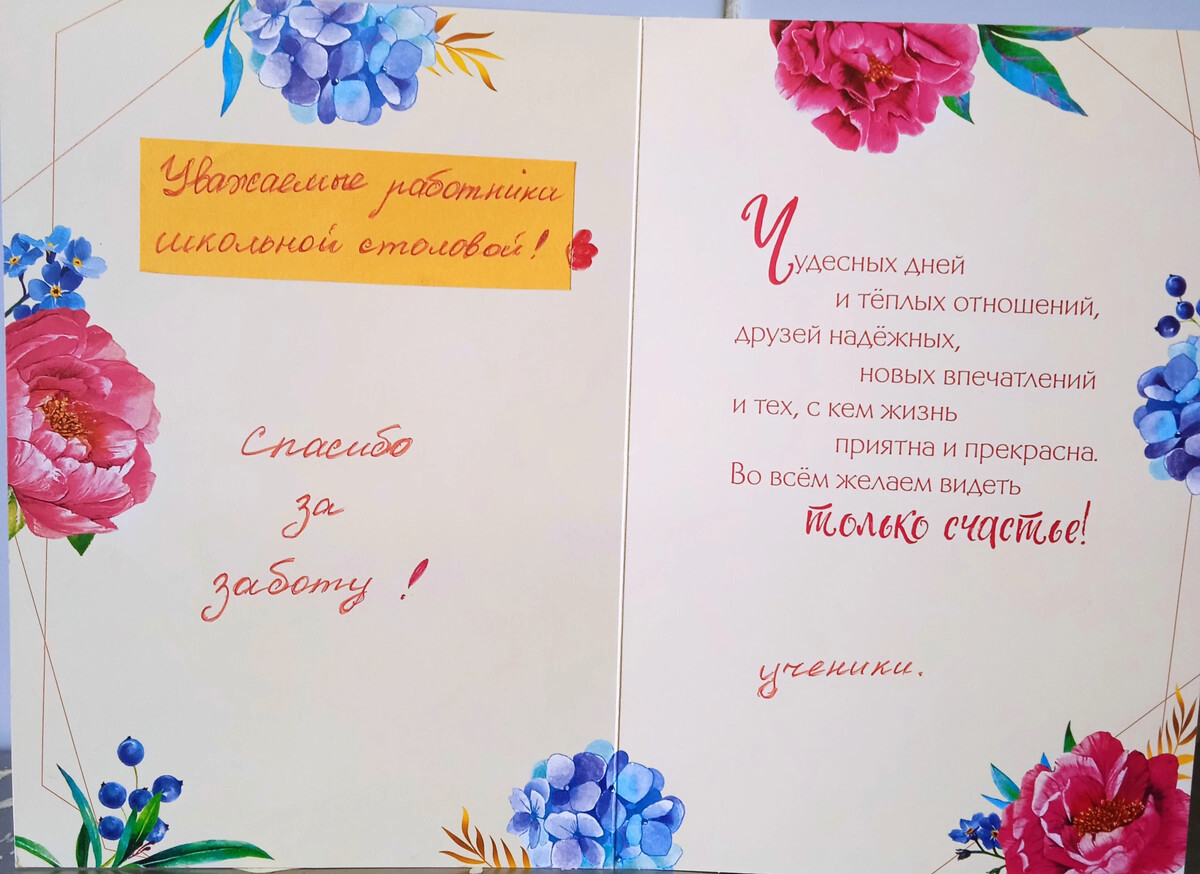 Уважаемые работники
школьной столовой!
Спасибо
за
заботу!
Чудесных дней
и тёплых отношений,
друзей надёжных,
новых впечатлений
и тех, с кем жизнь
приятна и прекрасна.
Во всём желаем видеть
только счастье!
ученики.